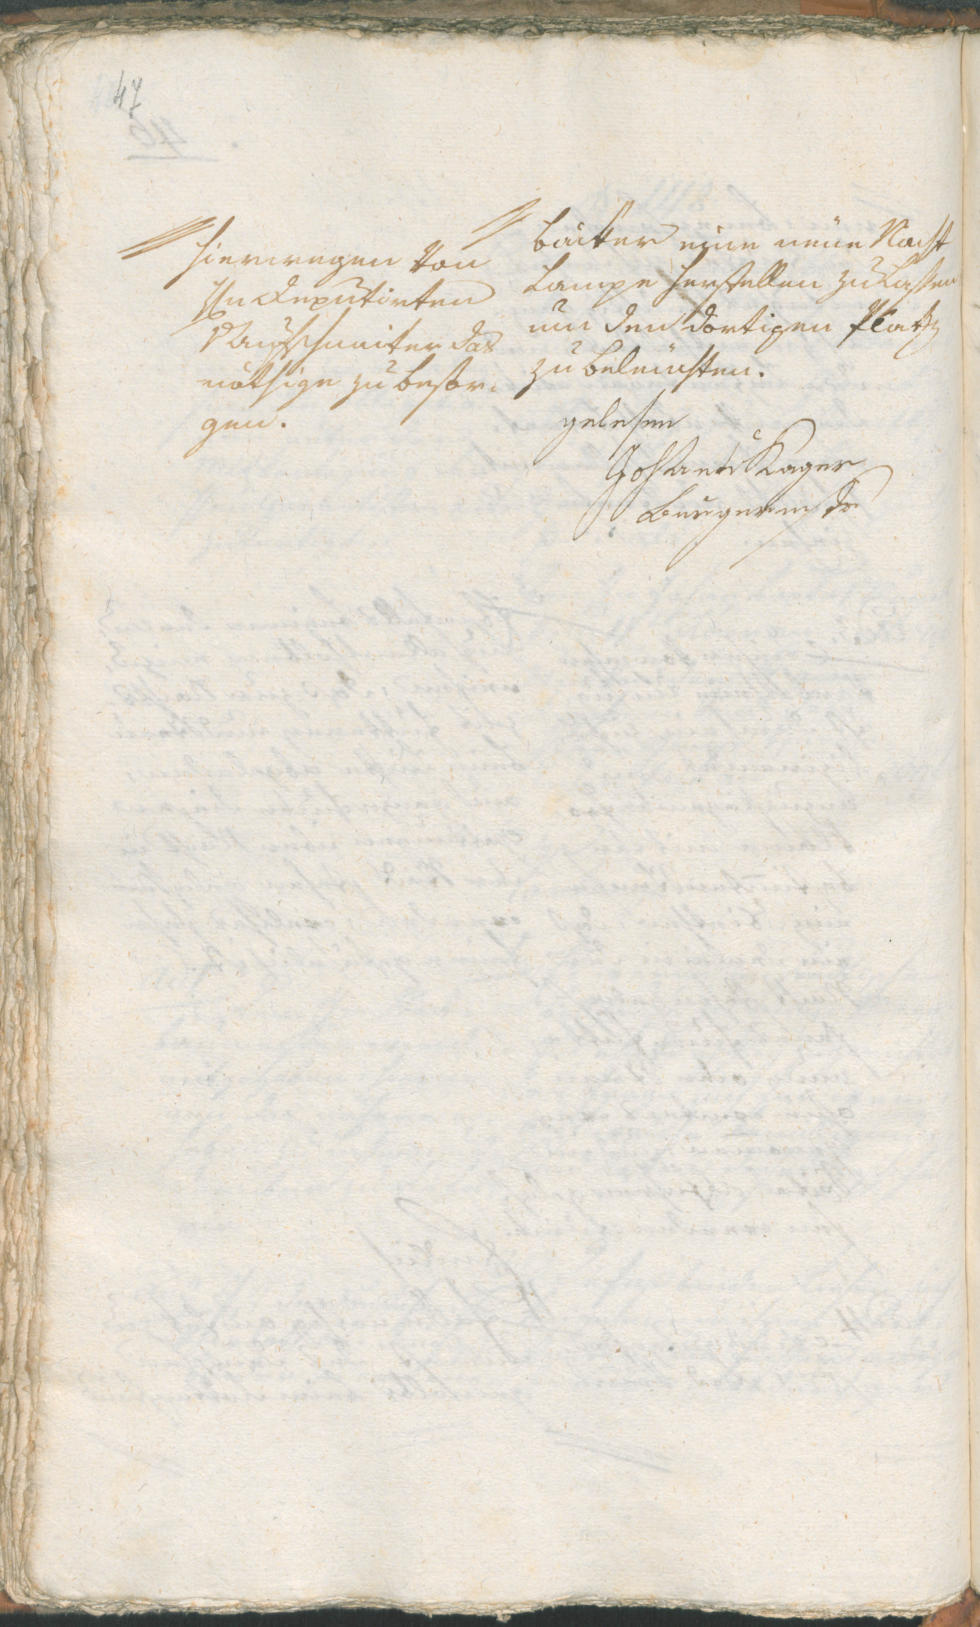 47
hierwegen von
Hn Deputirten
Aufschnaiter das
nöthige zu besor-
gen.
bäcker eine neüe Nacht
Lampe herstellen zu lassen
um den dortigen Platz
zu beleüchten.
gelesen
Joh Kager
Burgermstr